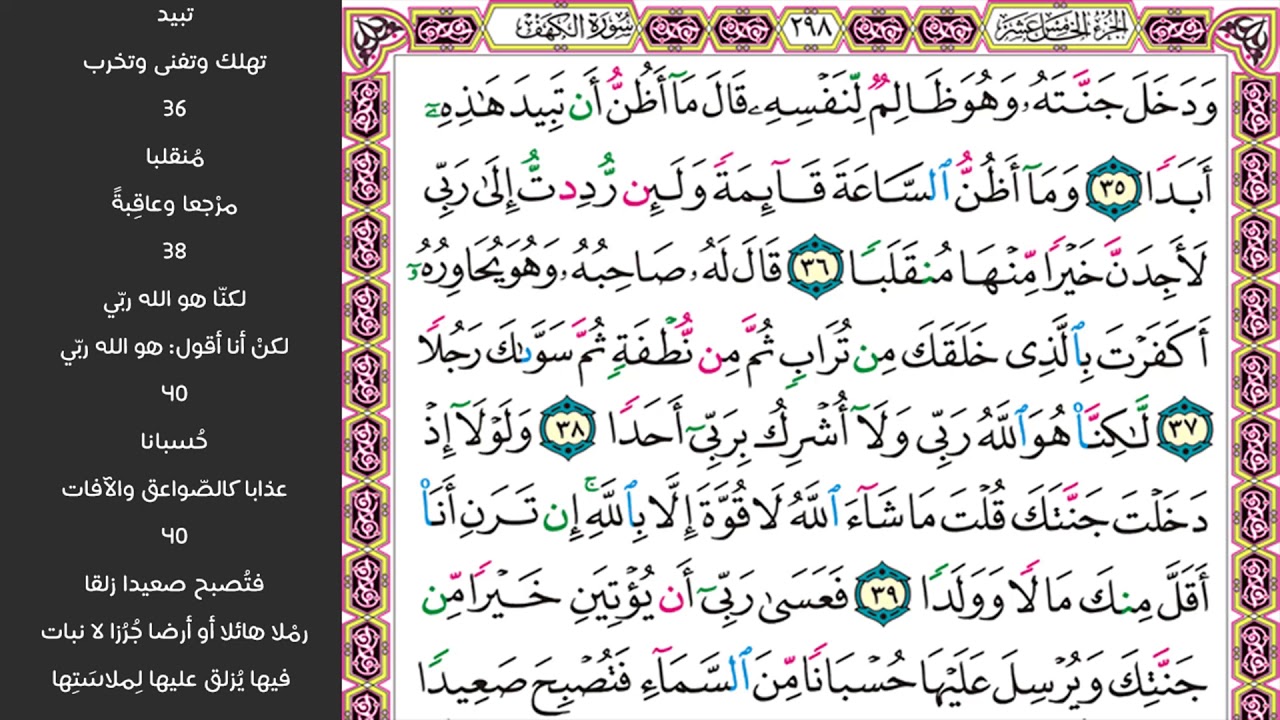 تبيد
تهلك وتفنى وتخرب
36
مُنقلبا
مرْجعا وعاقِبةً
38
لكنّا هو الله ربّي
لكنْ أنا أقول: هو الله ربّي
٤٥
حُسبانا
عذابا كالصّواعق والآفات
٤٥
فتُصبح صعيدا زلقا
رمْلا هائلا أو أرضا جُرُزا لا نبات
فيها يُزلق عليها لِملاسَتِها
الجزء الخامس عشر
٢٩٨
سورة الكهف
وَدَخَلَ جَنَّتَهُۥ وَهُوَ ظَالِمٌ لِّنَفْسِهِۦ قَالَ مَآ أَظُنُّ أَن تَبِيدَ هَٰذِهِۦٓ
أَبَدًا ٣٥ وَمَآ أَظُنُّ ٱلسَّاعَةَ قَآئِمَةً وَلَئِن رُّدِدتُّ إِلَىٰ رَبِّى
لَأَجِدَنَّ خَيْرًا مِّنْهَا مُنقَلَبًا ٣٦ قَالَ لَهُۥ صَاحِبُهُۥ وَهُوَ يُحَاوِرُهُۥٓ
أَكَفَرْتَ بِٱلَّذِى خَلَقَكَ مِن تُرَابٍ ثُمَّ مِن نُّطْفَةٍ ثُمَّ سَوَّىٰكَ رَجُلًا
٣٧ لَّٰكِنَّا۠ هُوَ ٱللَّهُ رَبِّى وَلَآ أُشْرِكُ بِرَبِّىٓ أَحَدًا ٣٨ وَلَوْلَآ إِذْ
دَخَلْتَ جَنَّتَكَ قُلْتَ مَا شَآءَ ٱللَّهُ لَا قُوَّةَ إِلَّا بِٱللَّهِ ۚ إِن تَرَنِ أَنَا۠
أَقَلَّ مِنكَ مَالًا وَوَلَدًا ٣٩ فَعَسَىٰ رَبِّىٓ أَن يُؤْتِيَنِ خَيْرًا مِّن
جَنَّتِكَ وَيُرْسِلَ عَلَيْهَا حُسْبَانًا مِّنَ ٱلسَّمَآءِ فَتُصْبِحَ صَعِيدًا